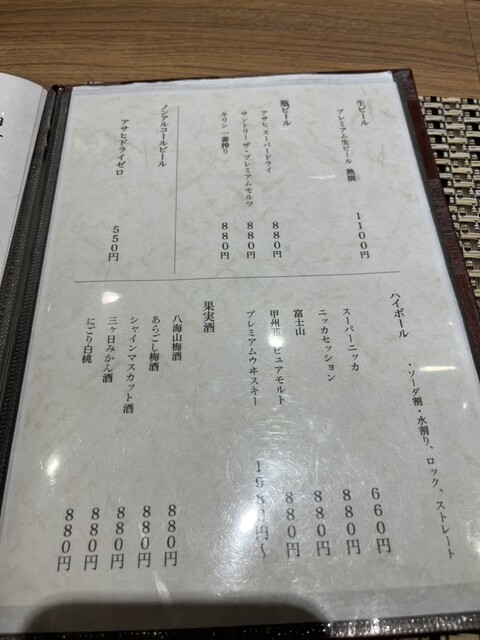 生ビール
プレミアム生ビール 熟撰 1100円
瓶ビール
アサヒスーパードライ 880円
サントリーザ・プレミアムモルツ 880円
キリン一番搾り 880円
ノンアルコールビール
アサヒドライゼロ 550円
ハイボール ・ソーダ割・水割り、ロック、ストレート
スーパーニッカ 660円
ニッカセッション 880円
富士山 880円
甲州 ピュアモルト 880円
プレミアムウヰスキー 1980円～
果実酒
八海山梅酒 880円
あらごし梅酒 880円
シャインマスカット酒 880円
三ヶ日みかん酒 880円
にごり白桃 880円